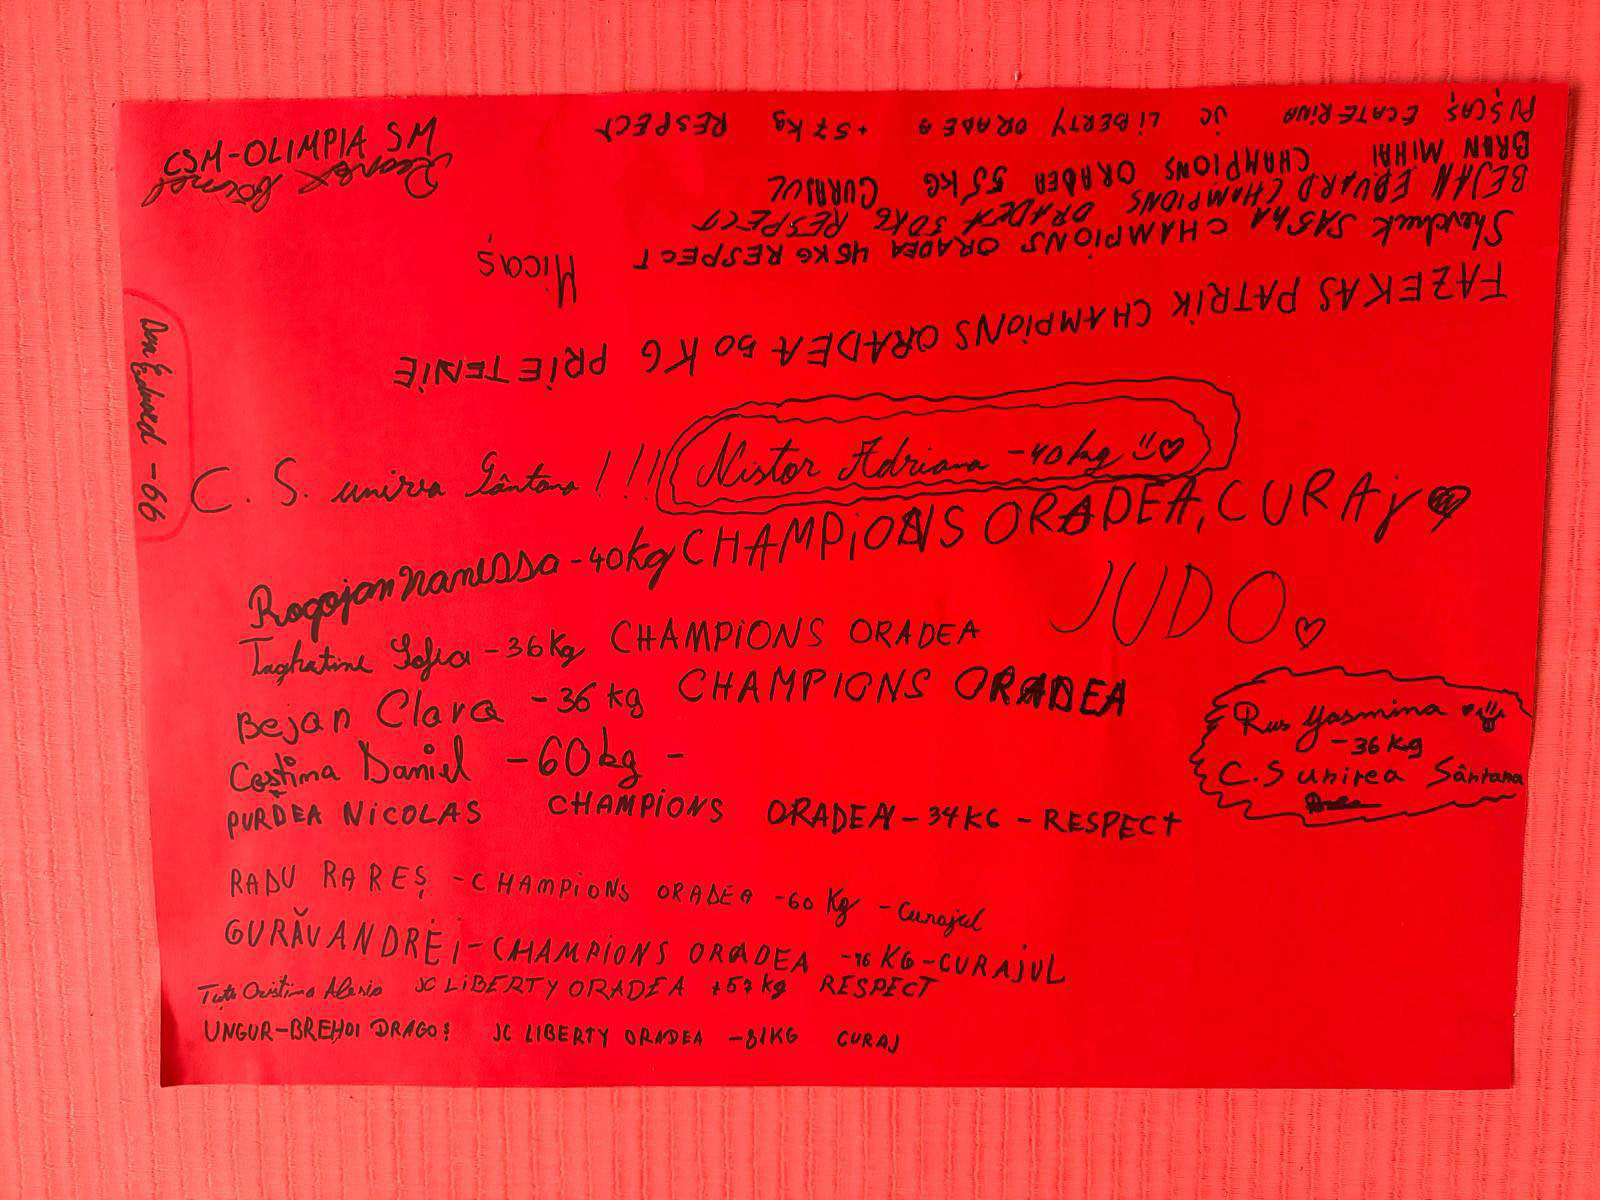 CSM-OLIMPIA SM
PIȘCAȘ ECATERINA JC LIBERTY ORADEA +57kg RESPECT
BRAN MIHAI CHAMPIONS ORADEA 55 KG CURAJUL
BEJAN EDUARD CHAMPIONS ORADEA 50KG RESPECT
Shevchuk SASHA CHAMPIONS ORADEA 45KG RESPECT
Micaș
FAZEKAS PATRIK CHAMPIONS ORADEA 50 KG PRIETENIE
Dan Eduard -66
C. S. unirea Sântana!!!
Nistor Adriana -40kg
Rogojan Vanessa -40kg CHAMPiONS ORADEA, CURAj
JUDO
Sofia -36kg CHAMPiONS ORADEA
Bejan Clara -36 kg CHAMPIONS ORADEA
Daniel -60kg -
Rus Yasmina
-36 kg
C.S unirea Sântana
PURDEA NICOLAS CHAMPIONS ORADEA - 34KG - RESPECT
RADU RAREȘ - CHAMPiONS ORADEA -60 Kg - Curajul
GURĂU ANDREi - CHAMPiONS ORADEA KG - CURAJUL
JC LiBERTY ORADEA +57kg RESPECT
UNGUR-BREHOI DRAGOȘ JC LIBERTY ORADEA -81KG CURAJ